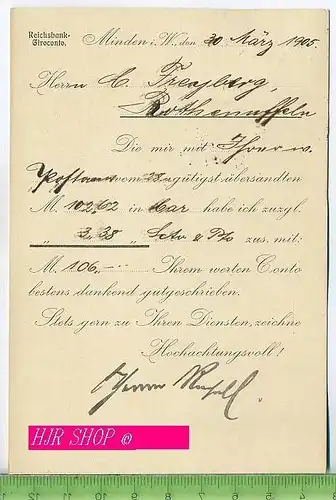 Reichsbank-
Giroconto.
Minden i. W., den 30 März 1905.
Herrn C. Freyberg,
Rothenuffeln
Die mir mit Ihrer w.
vom 28. gütigst übersandten
M. 102,62 in bar habe ich zuzgl.
" 3,38 " Scto & Pto zus. mit:
M. 106,— Ihrem werten Conto
bestens dankend gutgeschrieben.
Stets gern zu Ihren Diensten, zeichne
Hochachtungsvoll!
HJR SHOP ©